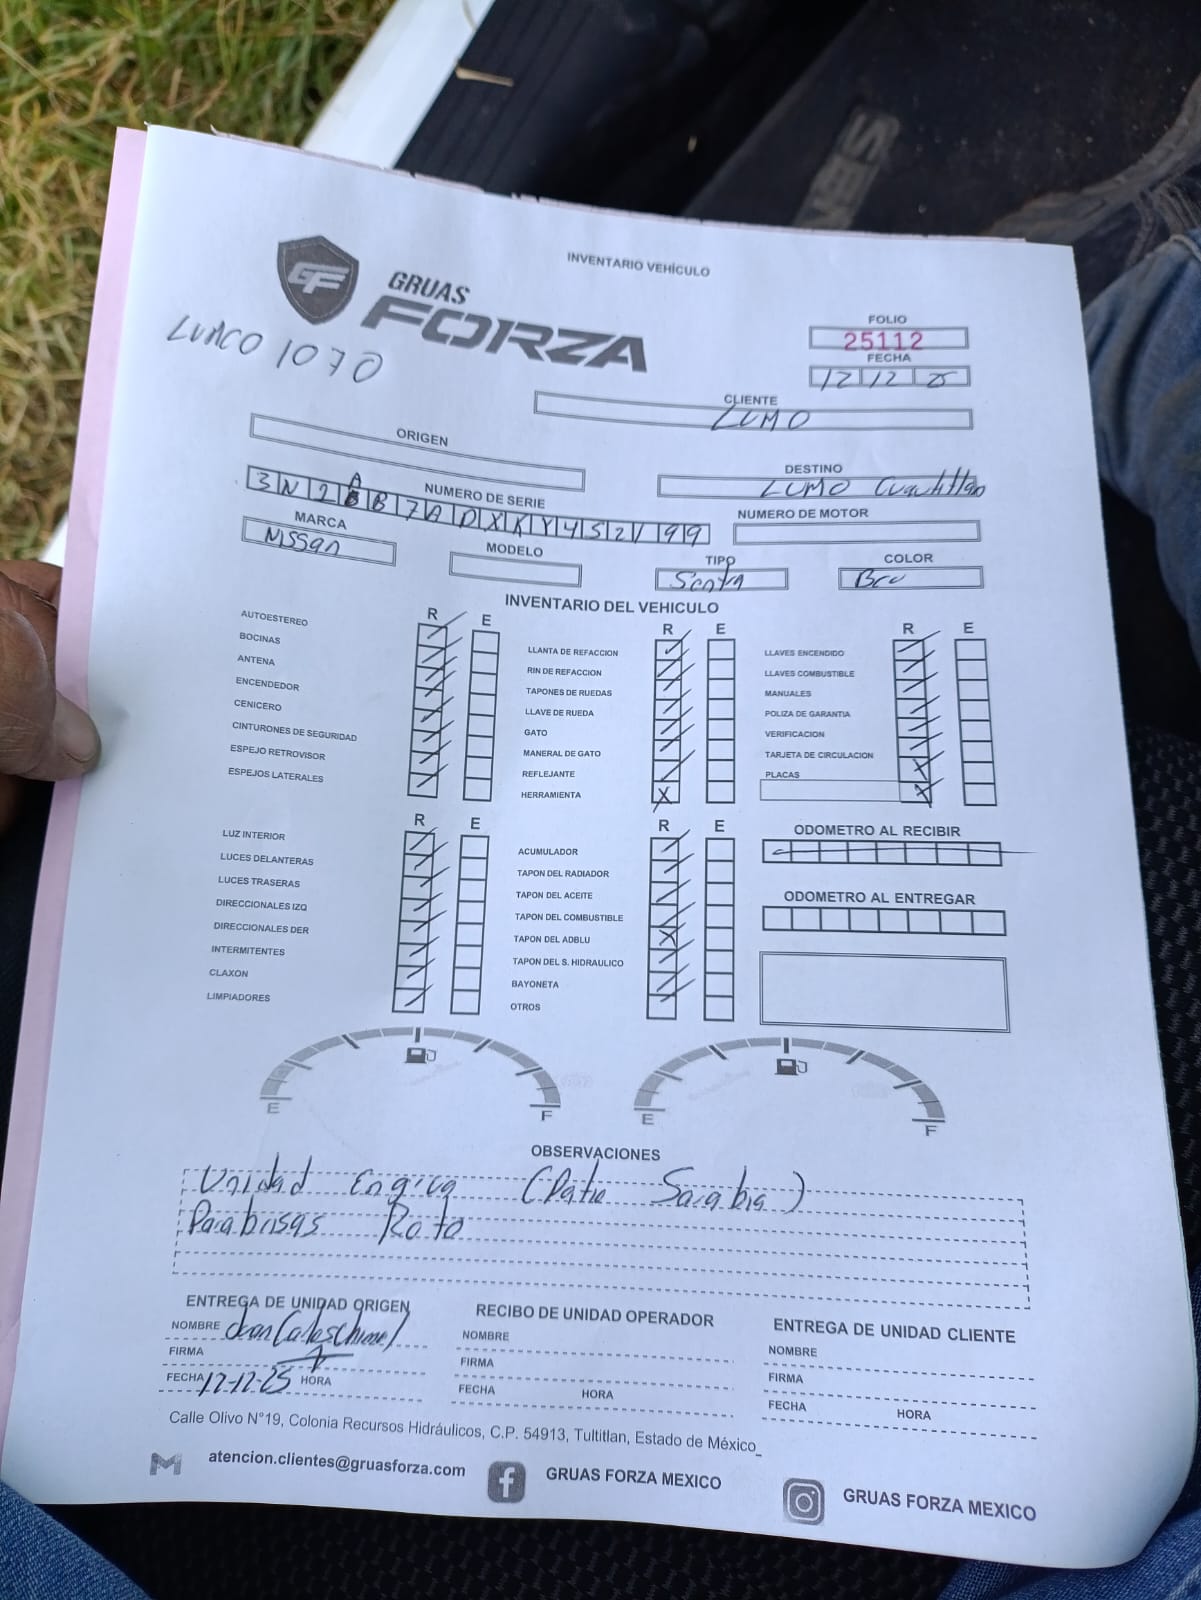 INVENTARIO VEHÍCULO
GF
GRUAS
FORZA
LUMCO 1070
FOLIO
25112
FECHA
12 12 25
CLIENTE
LUMO
ORIGEN
DESTINO
LUMO Cuautitlan
NUMERO DE SERIE
3N2 A B7ADXKY452199
NUMERO DE MOTOR
MARCA
Nissan
MODELO
TIPO
Sentra
COLOR
INVENTARIO DEL VEHICULO
R E
AUTOESTEREO
BOCINAS
ANTENA
ENCENDEDOR
CENICERO
CINTURONES DE SEGURIDAD
ESPEJO RETROVISOR
ESPEJOS LATERALES
R E
LLANTA DE REFACCION
RIN DE REFACCION
TAPONES DE RUEDAS
LLAVE DE RUEDA
GATO
MANERAL DE GATO
REFLEJANTE
HERRAMIENTA X
R E
LLAVES ENCENDIDO
LLAVES COMBUSTIBLE
MANUALES
POLIZA DE GARANTIA
VERIFICACION
TARJETA DE CIRCULACION
PLACAS
R E
LUZ INTERIOR
LUCES DELANTERAS
LUCES TRASERAS
DIRECCIONALES IZQ
DIRECCIONALES DER
INTERMITENTES
CLAXON
LIMPIADORES
R E
ACUMULADOR
TAPON DEL RADIADOR
TAPON DEL ACEITE
TAPON DEL COMBUSTIBLE
TAPON DEL ADBLU
TAPON DEL S. HIDRAULICO
BAYONETA
OTROS
ODOMETRO AL RECIBIR
ODOMETRO AL ENTREGAR
E F
E F
OBSERVACIONES
Unidad (Patio Sarabia)
Parabrisas Roto
ENTREGA DE UNIDAD ORIGEN
NOMBRE
FIRMA
FECHA 12-12-25 HORA
RECIBO DE UNIDAD OPERADOR
NOMBRE
FIRMA
FECHA HORA
ENTREGA DE UNIDAD CLIENTE
NOMBRE
FIRMA
FECHA HORA
Calle Olivo N°19, Colonia Recursos Hidráulicos, C.P. 54913, Tultitlan, Estado de México_
atencion.clientes@gruasforza.com
GRUAS FORZA MEXICO
GRUAS FORZA MEXICO